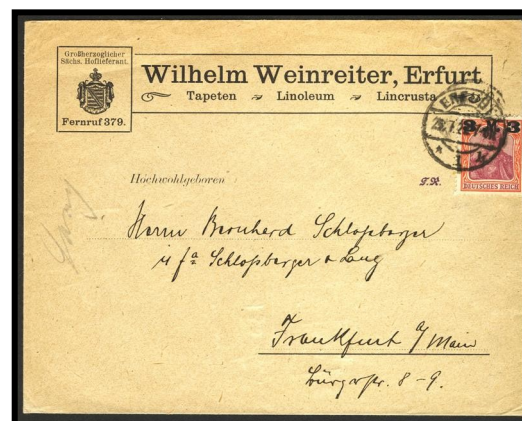 Großherzoglicher
Sächs. Hoflieferant.
Fernruf 379.
Wilhelm Weinreiter, Erfurt
Tapeten Linoleum Lincrusta
ERFURT
3 3
DEUTSCHES REICH
Hochwohlgeboren
T.R.
Herrn Bernhard Schloßberger
i/ fa Schloßberger & Lang
Frankfurt a/Main
Bürgerstr. 8-9.